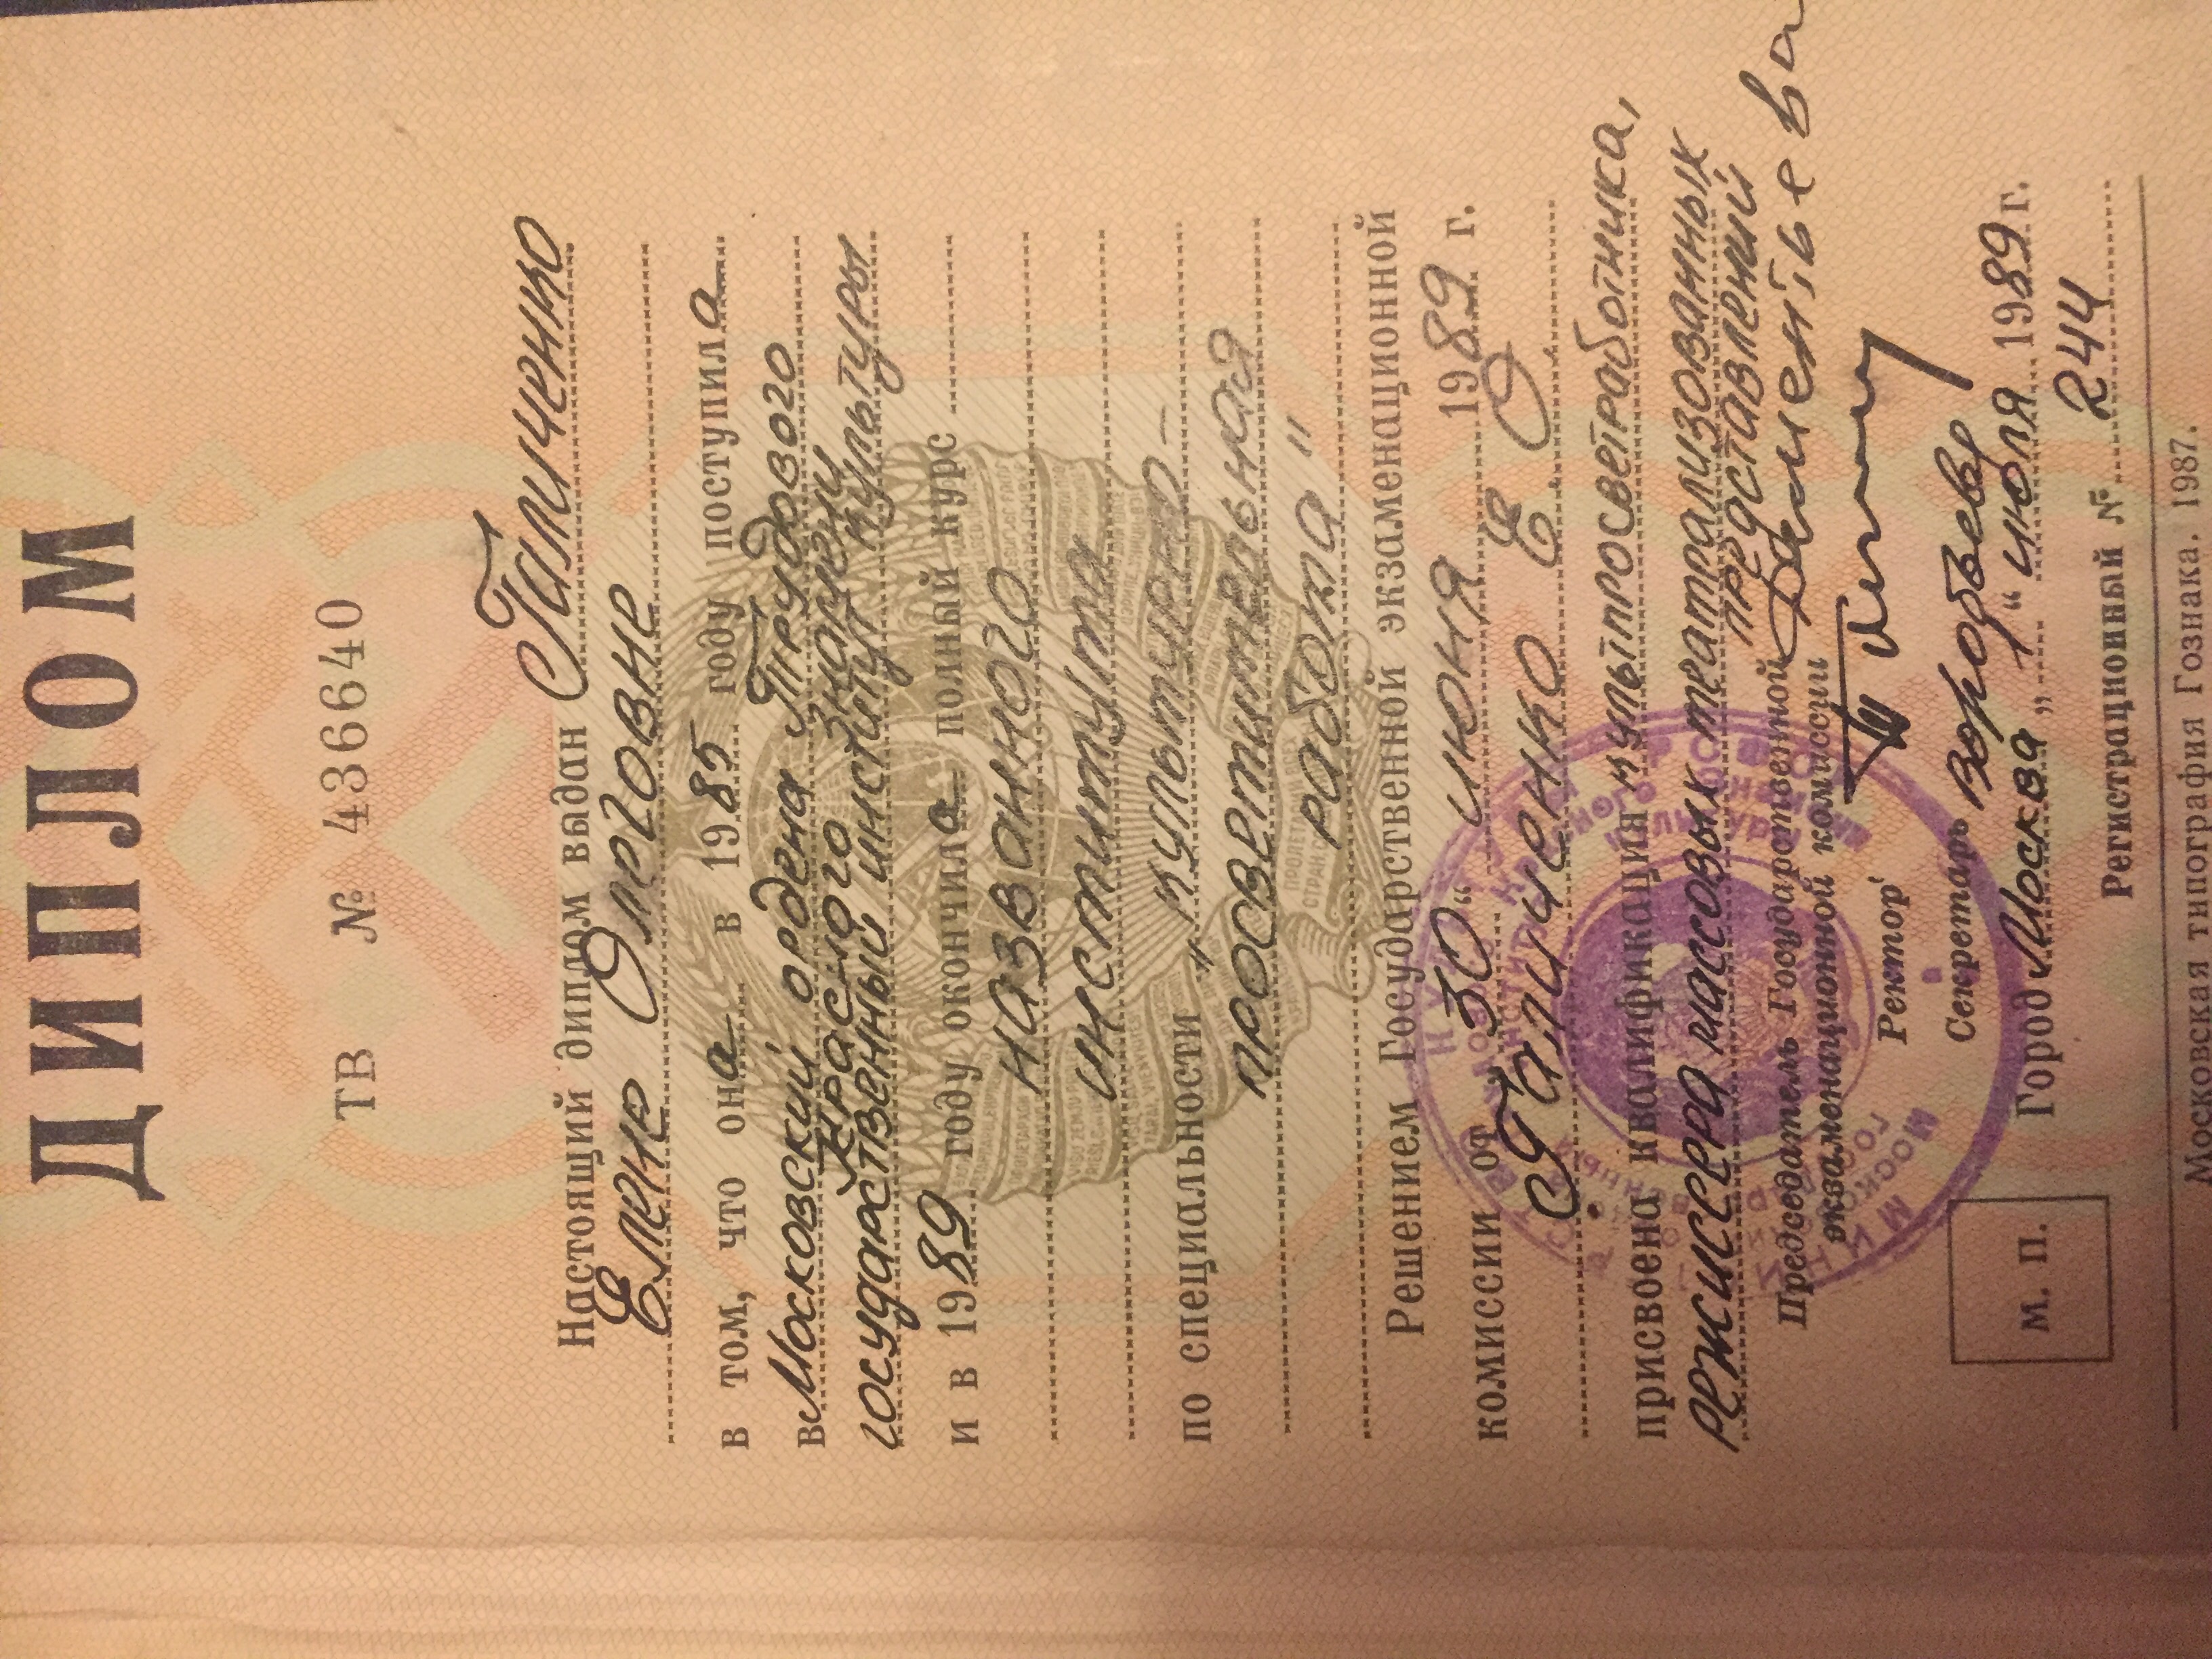 ДИПЛОМ
ТВ № 436640
Настоящий диплом выдан Галиченко
Елене Олеговне
в том, что она в 1985 году поступила
в Московский ордена Трудового
Красного Знамени
государственный институт культуры
и в 1989 году окончила полный курс
названного
института
по специальности „культурно-
просветительная
работа"
Решением Государственной экзаменационной
комиссии от „30" июня 1989 г.
Галиченко Е. О.
присвоена квалификация культпросветработника,
режиссера массовых театрализованных
представлений
Председатель Государственной
экзаменационной комиссии
Ректор
Секретарь
Город Москва „1" июля 1989 г.
М. П.
Регистрационный № 244
Московская типография Гознака. 1987.